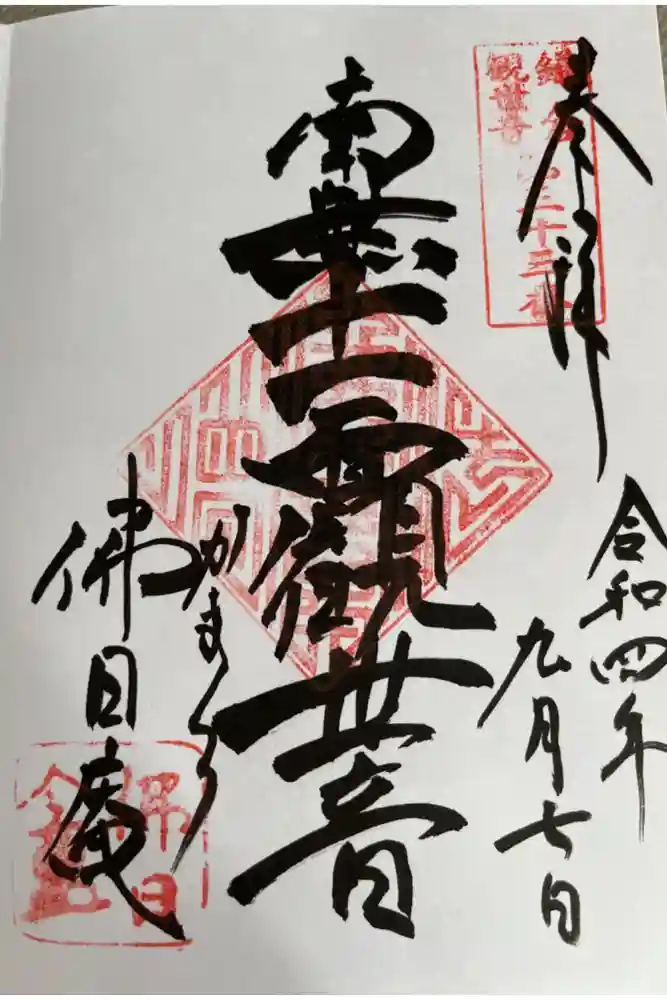 奉拝
鎌倉第三十三番
観世音
令和四年
九月七日
南無十一面観世音
かまくら
佛日庵